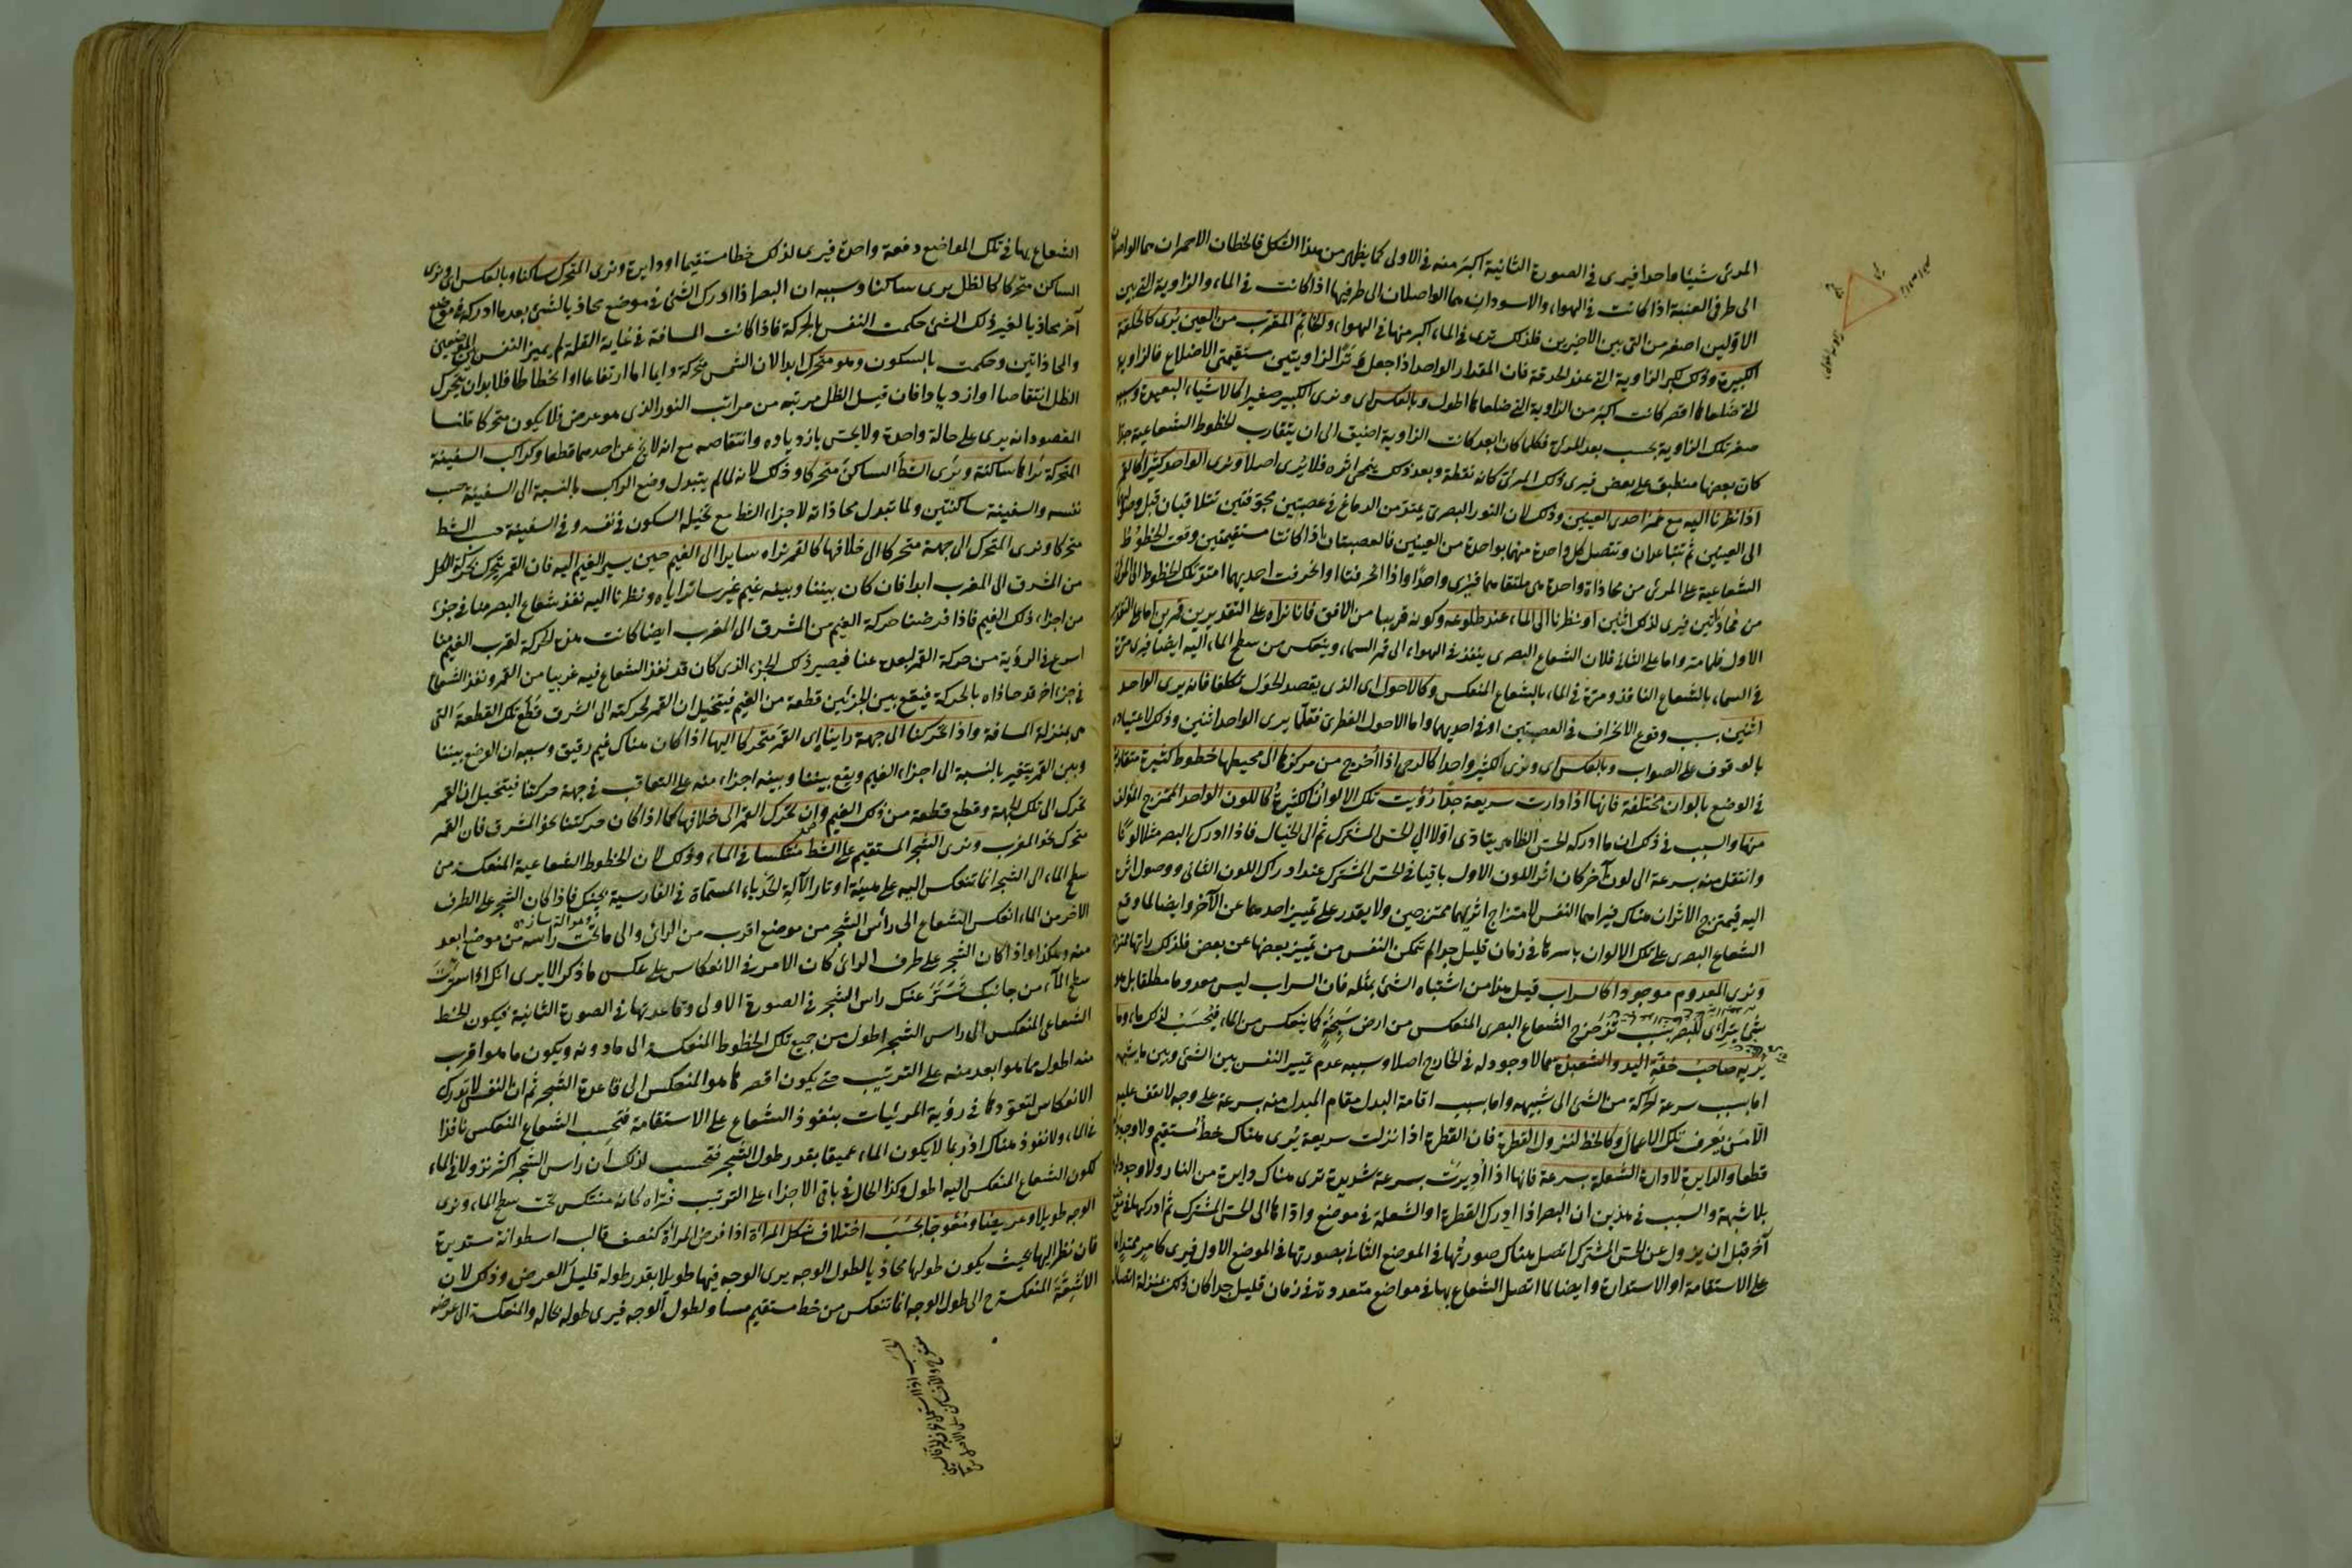 المرئى شيئا واحدا فيرى فى الصورة الثانية اكبر منه فى الاولى كما يظهر من هذا الشكل فالخطان الاحمران هما الواصلان
الى طرفى العنبة اذا كانت فى الهواء والاسودان هما الواصلان الى طرفيها اذا كانت فى الماء والزاوية التى بين
الاوّلين اصغر من التى بين الاخيرين فلذلك ترى فى الماء اكبر منها فى الهواء وكالخاتم المقرّب من العين يُرى كالحلقة
الكبيرة وذلك لكبر الزاوية التى عند الحدقة فان المقدار الواحد اذا جعل وترًا لزاويتين مستقيمتى الاضلاع فالزاوية
التى ضلعاها اقصر كانت اكبر من الزاوية التى ضلعاها اطول وبالعكس اى ونرى الكبير صغيرا كالاشياء البعيدة وسببه
صغر تلك الزاوية بحسب بعد المرئى فكلما كان ابعد كانت الزاوية اضيق الى ان يتقارب الخطوط الشعاعية جدّا
كان بعضها منطبق على بعض فيرى ذلك المرئى كانه نقطة وبعد ذلك ينمحى اثره فلا يُرى اصلا ونرى الواحد كثيرا كالقمر
اذا نظرنا اليه مع غمز احدى العينين وذلك لان النور البصرى يمتد من الدماغ فى عصبتين مجوّفتين تتلاقيان قبل وصولهما
الى العينين ثم تتباعدان وتتصل كل واحدة منهما بواحدة من العينين فالعصبتان اذا كانتا مستقيمتين وقعت الخطوط
الشعاعية على المرئى من محاذاة واحدة هى ملتقاهما فيُرى واحدًا واذا انحرفتا او انحرفت احديهما امتدّ تلك الخطوط الى المرئى
من محاذاتين فيرى لذلك اثنين او نظرنا الى الماء عند طلوعه وكونه قريبا من الافق فانا نراه على التقديرين قمرين اما على التقدير
الاول فلما مر واما على الثانى فلان الشعاع البصرى ينفذ فى الهواء الى قمر السماء وينعكس من سطح الماء اليه ايضا فيرى مرّة
فى السماء بالشعاع النافذ ومرّة فى الماء بالشعاع المنعكس وكالاحول اى الذى يقصد الحول تكلفا فانه يرى الواحد
اثنين بسبب وقوع الانحراف فى العصبتين او فى احديهما واما الاحول الفطرى فقلّما يرى الواحد اثنين وذلك لاعتياده
بالوقوف على الصواب وبالعكس اى ونرى الكثير واحدا كالرحى اذا اُخرج من مركزها الى محيطها خطوط كثيرة متقاربة
فى الوضع بالوان مختلفة فانها اذا دارت سريعة جدّا رُؤيت تلك الالوان الكثيرة كاللون الواحد الممتزج المؤلف
منها والسبب فى ذلك ان ما ادركه الحس الظاهر يتادى اوّلا الى الحس المشترك ثم الى الخيال فاذا ادرك البصر مثلا لونًا
وانتقل منه بسرعة الى لون آخر كان اثر اللون الاول باقيا فى الحس المشترك عند ادراك اللون الثانى ووصول اثره
اليه فيمتزج الاثران هناك فيراهما النفس لامتزاج اثريهما ممتزجين ولا يقدر على تمييز احدهما عن الآخر وايضا لما وقع
الشعاع البصرى على تلك الالوان باسرها فى زمان قليل جدا لم تتمكن النفس من تمييز بعضها عن بعض فلذلك راتها ممتزجة
ونرى المعدوم موجودا كالسراب قيل هذا من اشتباه الشئ بمثله فان السراب ليس معدوما مطلقا بل هو
شئ يتراءى للبصر بسبب ترجرج الشعاع البصرى المنعكس من ارض سبخة كما ينعكس من الماء فيُحسَب لذلك ماء وما
يُريه صاحب خفّة اليد والشعبذة مما لا وجود له فى الخارج اصلا وسببه عدم تمييز النفس بين الشئ وبين ما يشبهه
اما بسبب سرعة الحركة من الشئ الى شبيهه واما بسبب اقامة البدل مقام المبدل منه بسرعة على وجه لا يقف عليه
الّا من يعرف تلك الاعمال وكالخط لنزول القطرة فان القطرة اذا نزلت سريعة يُرى هناك خط مستقيم ولا وجود له
قطعا والدايرة لادارة الشعلة بسرعة فانها اذا اُديرت بسرعة شديدة ترى هناك دايرة من النار ولا وجود لها
بلا شبهة والسبب فى هذين ان البصر اذا ادرك القطرة او الشعلة فى موضع وادّاها الى الحس المشترك ثم ادركها فى موضع
آخر قبل ان يزول عن الحس المشترك اتصل هناك صورتها فى الموضع الثانى بصورتها فى الموضع الاول فيرى كامر ممتد اما
على الاستقامة او الاستدارة وايضا لما اتصل الشعاع بها فى مواضع متعددة فى زمان قليل جدا كان ذلك بمنزلة اتصال
الشعاع بها فى تلك المواضع دفعة واحدة فيرى لذلك خطا مستقيما او دايرة ونرى المتحرك ساكنا وبالعكس اى ونرى
الساكن متحركا كالظل يرى ساكنا وسببه ان البصر اذا ادرك الشئ فى موضع محاذيا لشئ بعد ما ادركه فى موضع
آخر محاذيا لغير ذلك الشئ حكمت النفس بالحركة فاذا كانت المسافة فى غاية القلة لم يميز النفس بين الموضعين
والمحاذاتين وحكمت بالسكون وهو متحرك ابدا لان الشمس متحركة دايما اما ارتفاعا او انحطاطا فلا بد ان يتحرك
الظل انتقاصا او ازديادا فان قيل الظل مرتبة من مراتب النور الذى هو عرض فلا يكون متحركا قلنا
المقصود انه يرى على حالة واحدة ولا يحسّ بازدياده وانتقاصه مع انه لا يخ عن احدهما قطعا وكراكب السفينة
المتحركة يراها ساكنة ويُرى الشطّ الساكن متحركا وذلك لانه لما لم يتبدل وضع الراكب بالنسبة الى السفينة حسب
نفسه والسفينة ساكنتين ولما تبدل محاذاته لاجزاء الشط مع تخيله السكون فى نفسه وفى السفينة حسب الشط
متحركا ونرى المتحرك الى جهة متحركا الى خلافها كالقمر نراه سايرا الى الغيم حين يسير الغيم اليه فان القمر يتحرك بحركة الكل
من المشرق الى المغرب ابدا فان كان بيننا وبينه غيم غير ساتر اياه ونظرنا اليه نفذ شعاع البصر منا فى جزء
من اجزاء ذلك الغيم فاذا فرضنا حركة الغيم من المشرق الى المغرب ايضا كانت هذه الحركة لقرب الغيم منا
اسرع فى الرؤية من حركة القمر لبعده عنا فيصير ذلك الجزء الذى كان قد نفذ الشعاع فيه غربيا من القمر ونفذ الشعاع
فى جزء آخر قد حاذاه بالحركة فيقع بين الجزئين قطعة من الغيم فيتخيل ان القمر لحركته الى الشرق قطع تلك القطعة التى
هى بمنزلة المسافة واذا تحركنا الى جهة راينا اى القمر متحركا اليها اذا كان هناك غيم رقيق وسببه ان الوضع بيننا
وبين القمر يتغير بالنسبة الى اجزاء الغيم ويقع بيننا وبينه اجزاء منه على التعاقب فى جهة حركتنا فيتخيل ان القمر
تحرك الى تلك الجهة وقطع قطعة من ذلك الغيم وان تحرك القمر الى خلافها كما اذا كان حركتنا نحو المشرق فان القمر
متحرك نحو المغرب ونرى الشجر المستقيم على الشط منتكسا فى الماء وذلك لان الخطوط الشعاعية المنعكسة من
سطح الماء الى الشجر انما تنعكس اليه على هيئة اوتار الآلة الحدباء المسماة فى الفارسية بچنك فاذا كان الشجر على الطرف
الآخر من الماء انعكس الشعاع الى رأس الشجر من موضع اقرب من الرائى والى ما تحت رأسه من موضع ابعد
منه وهكذا واذا كان الشجر على طرف الرائى كان الامر فى الانعكاس على عكس ما ذكر الا يرى انك اذا سترت
سطح الماء من جانبك تستّر عنك راس الشجر فى الصورة الاولى وقاعدتها فى الصورة الثانية فيكون الخط
الشعاعى المنعكس الى راس الشجر اطول من جميع تلك الخطوط المنعكسة الى ما دونه ويكون ما هو اقرب
منه اطول مما هو ابعد منه على الترتيب حتى يكون اقصرها هو المنعكس الى قاعدة الشجر ثم ان النفس لا تدرك
الانعكاس لتعوّدها فى رؤية المرئيات بنفوذ الشعاع على الاستقامة فتحسب الشعاع المنعكس نافذا
فى الماء ولا نفوذ هناك اذ ربما لا يكون الماء عميقا بقدر طول الشجر فتحسب لذلك ان راس الشجر اكثر نزولا فى الماء
لكون الشعاع المنعكس اليه اطول وكذا الحال فى باقى الاجزاء على الترتيب فتراه كانه منتكس تحت سطح الماء ونرى
الوجه طويلا وعريضا ومعوجا بحسب اختلاف شكل المرآة اذا فرض المرآة كنصف قالب اسطوانة مستديرة
فان نظر اليها بحيث يكون طولها محاذيا لطول الوجه يرى الوجه فيها طويلا بقدر طوله قليل العرض وذلك لان
الاشعة المنعكسة الى طول الوجه انما تنعكس من خط مستقيم مساو لطول الوجه فيرى طوله بحاله والمنعكسة الى عرضه